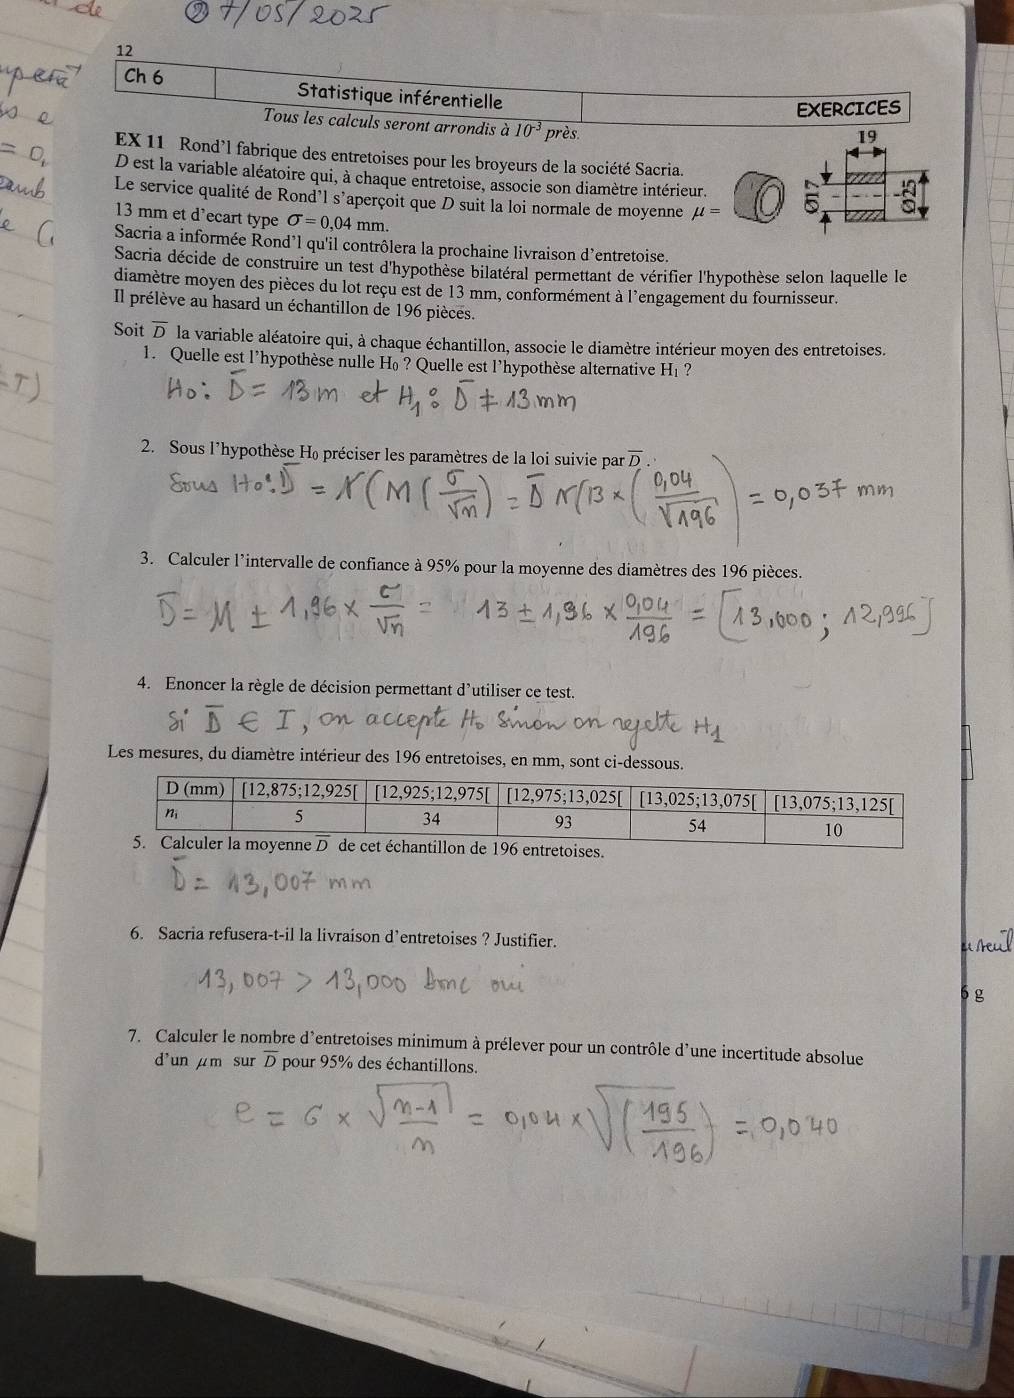 de
27/05/2025
12
Ch 6
Statistique inférentielle
EXERCICES
Tous les calculs seront arrondis à 10⁻³ près.
EX 11 Rond'l fabrique des entretoises pour les broyeurs de la société Sacria.
D est la variable aléatoire qui, à chaque entretoise, associe son diamètre intérieur.
Le service qualité de Rond'l s'aperçoit que D suit la loi normale de moyenne μ =
13 mm et d'ecart type σ = 0,04 mm.
19
Ø17
Ø25
Sacria a informée Rond'l qu'il contrôlera la prochaine livraison d'entretoise.
Sacria décide de construire un test d'hypothèse bilatéral permettant de vérifier l'hypothèse selon laquelle le
diamètre moyen des pièces du lot reçu est de 13 mm, conformément à l'engagement du fournisseur.
Il prélève au hasard un échantillon de 196 pièces.
Soit D̅ la variable aléatoire qui, à chaque échantillon, associe le diamètre intérieur moyen des entretoises.
1. Quelle est l'hypothèse nulle H₀ ? Quelle est l'hypothèse alternative H₁ ?
H₀: D̅ = 13 m et H₁: D̅ ≠ 13 mm
2. Sous l'hypothèse H₀ préciser les paramètres de la loi suivie par D̅ .
Sous H₀: D̅ = N(M(σ/√n) = D̅ N(13 × (0,04/√196) = 0,037 mm
3. Calculer l'intervalle de confiance à 95% pour la moyenne des diamètres des 196 pièces.
D̅ = M ± 1,96 × σ/√n = 13 ± 1,96 × 0,04/196 = [13,000 ; 12,996]
4. Enoncer la règle de décision permettant d'utiliser ce test.
Si D̅ ∈ I, on accepte H₀ sinon on rejette H₁
Les mesures, du diamètre intérieur des 196 entretoises, en mm, sont ci-dessous.
D (mm) [12,875;12,925[ [12,925;12,975[ [12,975;13,025[ [13,025;13,075[ [13,075;13,125[
nᵢ 5 34 93 54 10
5. Calculer la moyenne D̅ de cet échantillon de 196 entretoises.
D̅ = 13,007 mm
6. Sacria refusera-t-il la livraison d'entretoises ? Justifier.
13,007 > 13,000 Donc oui
6 g
7. Calculer le nombre d'entretoises minimum à prélever pour un contrôle d'une incertitude absolue
d'un μm sur D̅ pour 95% des échantillons.
e = σ × √(n-1/n) = 0,04 × √(195/196) = 0,040